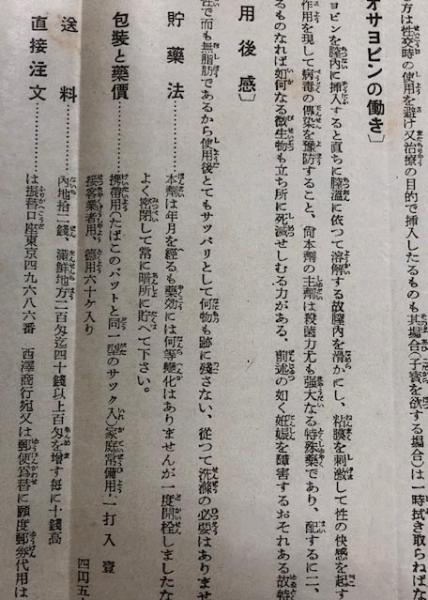 方は性交時の使用を避け又治療の目的で挿入したるものも其場合(子寳を欲する場合)は一時拭き取らねばな
オサヨピンの働き〕
ヨピンを膣内に挿入すると直ちに膣温に依つて溶解する故膣内を滑かにし、粘膜を刺激して性の快感を起す
作用を現して病毒の傳染を豫防すること、尙本劑の主劑は殺菌力尤も强大なる特殊藥であり、配するに二、
るものなれば如何なる微生物も立ち所に死滅せしむる力がある、前述の如く妊娠を障害するおそれある故特
用後感〕
性で而も無脂肪であるから使用後とてもサツパリとして何物も跡に殘さない、從つて洗滌の必要はありませ
貯藥法………本劑は年月を經るも藥効には何等變化はありませんが一度開栓しましたな
よく密閉して常に暗所に貯へて下さい。
包裝と藥價………携帶用(たばこのバツトと同一型のサツク入)家庭常備用一打入 壹
接客業者用、德用六十ケ入り 四円五十
送料………內地拾二錢、滿鮮地方二百匁迄四十錢以上百匁を增す每に十錢高
直接注文………は振替口座東京四九六八六番 西澤商行宛又は郵便爲替に願度郵券代用は